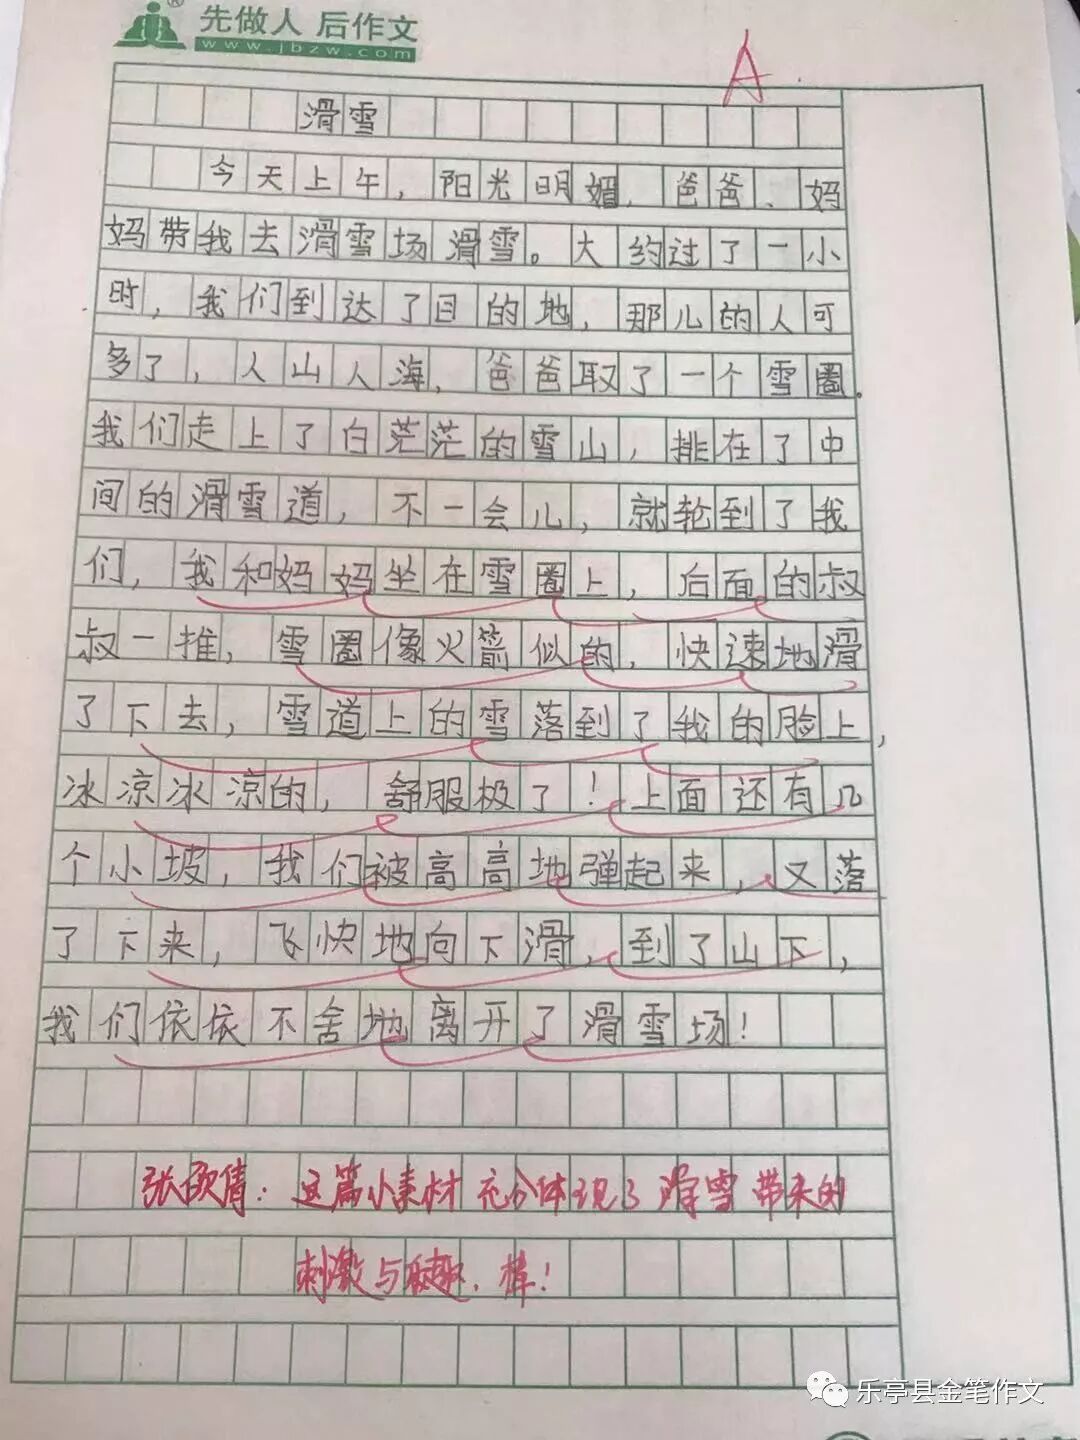 先做人 后作文
www.jbzw.com
A
滑雪
今天上午，阳光明媚，爸爸、妈
妈带我去滑雪场滑雪。大约过了一小
时，我们到达了目的地，那儿的人可
多了，人山人海，爸爸取了一个雪圈。
我们走上了白茫茫的雪山，排在了中
间的滑雪道，不一会儿，就轮到了我
们，我和妈妈坐在雪圈上，后面的叔
叔一推，雪圈像火箭似的，快速地滑
了下去，雪道上的雪落到了我的脸上，
冰凉冰凉的，舒服极了！上面还有几
个小坡，我们被高高地弹起来，又落
了下来，飞快地向下滑，到了山下，
我们依依不舍地离开了滑雪场！
张歆倩：这篇小素材充分体现了滑雪带来的
刺激与趣，棒！
乐亭县金笔作文